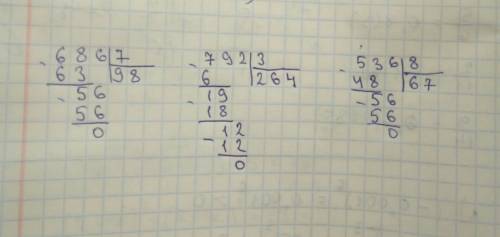 686 7
- 63 98
- 56
56
0
792 3
- 6 264
19
- 18
12
- 12
0
536 8
- 48 67
- 56
56
0